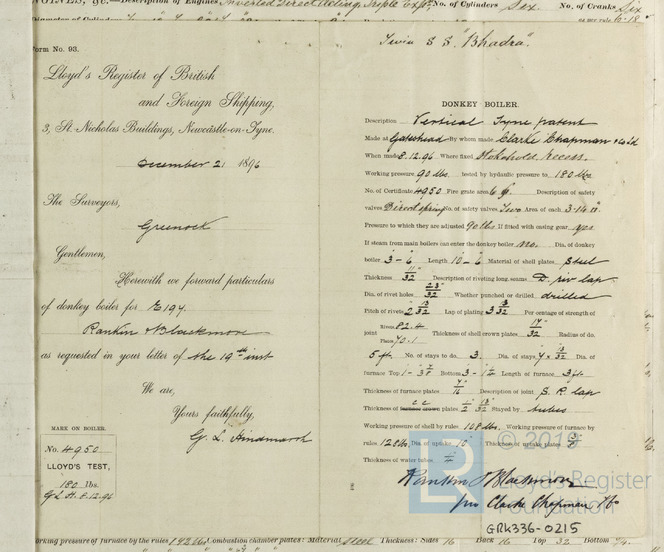 Description of Engines Inverted Direct Acting, Triple Expn No. of Cylinders Six No. of Cranks Six
Form No. 93.
Lloyd's Register of British
and Foreign Shipping,
3, St. Nicholas Buildings, Newcastle-on-Tyne.
December 21 1896
The Surveyors,
Greenock
Gentlemen,
Herewith we forward particulars
of donkey boiler for E 194.
Rankin & Blackmore
as requested in your letter of the 19th inst
We are,
Yours faithfully,
G. L. Hindmarsh
MARK ON BOILER.
No. 4950
LLOYD'S TEST,
180 lbs.
G.L.H. 8.12.96
Twin S S "Bhadra".
DONKEY BOILER.
Description Vertical Tyne patent
Made at Gateshead By whom made Clarke Chapman & Co Ld
When made 8.12.96 Where fixed Stokehold recess.
Working pressure 90 lbs tested by hydraulic pressure to 180 lbs
No. of Certificate 4950 Fire grate area 6 Description of safety
valves Direct spring No. of safety valves Two Area of each 3.14
Pressure to which they are adjusted 90 lbs If fitted with easing gear yes
If steam from main boilers can enter the donkey boiler no. Dia. of donkey
boiler 3-6 Length 10-6 Material of shell plates Steel
Thickness 11/32 Description of riveting long. seams D. riv lap
Dia. of rivet holes 23/32 Whether punched or drilled drilled
Pitch of rivets 2 13/32 Lap of plating 3 13/32 Per centage of strength of
joint Rivets 82.4 Plate 70.1 Thickness of shell crown plates 17/32 Radius of do.
5 ft. No. of stays to do. 3. Dia. of stays Dia. of
furnace Top Bottom Length of furnace 3 ft
Thickness of furnace plates 7/16 Description of joint S. R. lap
Thickness of furnace crown plates Stayed by tubes
Working pressure of shell by rules 108 lbs. Working pressure of furnace by
rules 128 lbs. Dia. of uptake 10 Thickness of uptake plates
Thickness of water tubes
Rankin & Blackmore
pro Clarke Chapman & Co
© 2019
LR
Lloyd's Register
Foundation
GRK336-0215
Working pressure of furnace by the rules Combustion chamber plates: Material Steel Thickness: Sides 16 Back 16 Top 32 Bottom